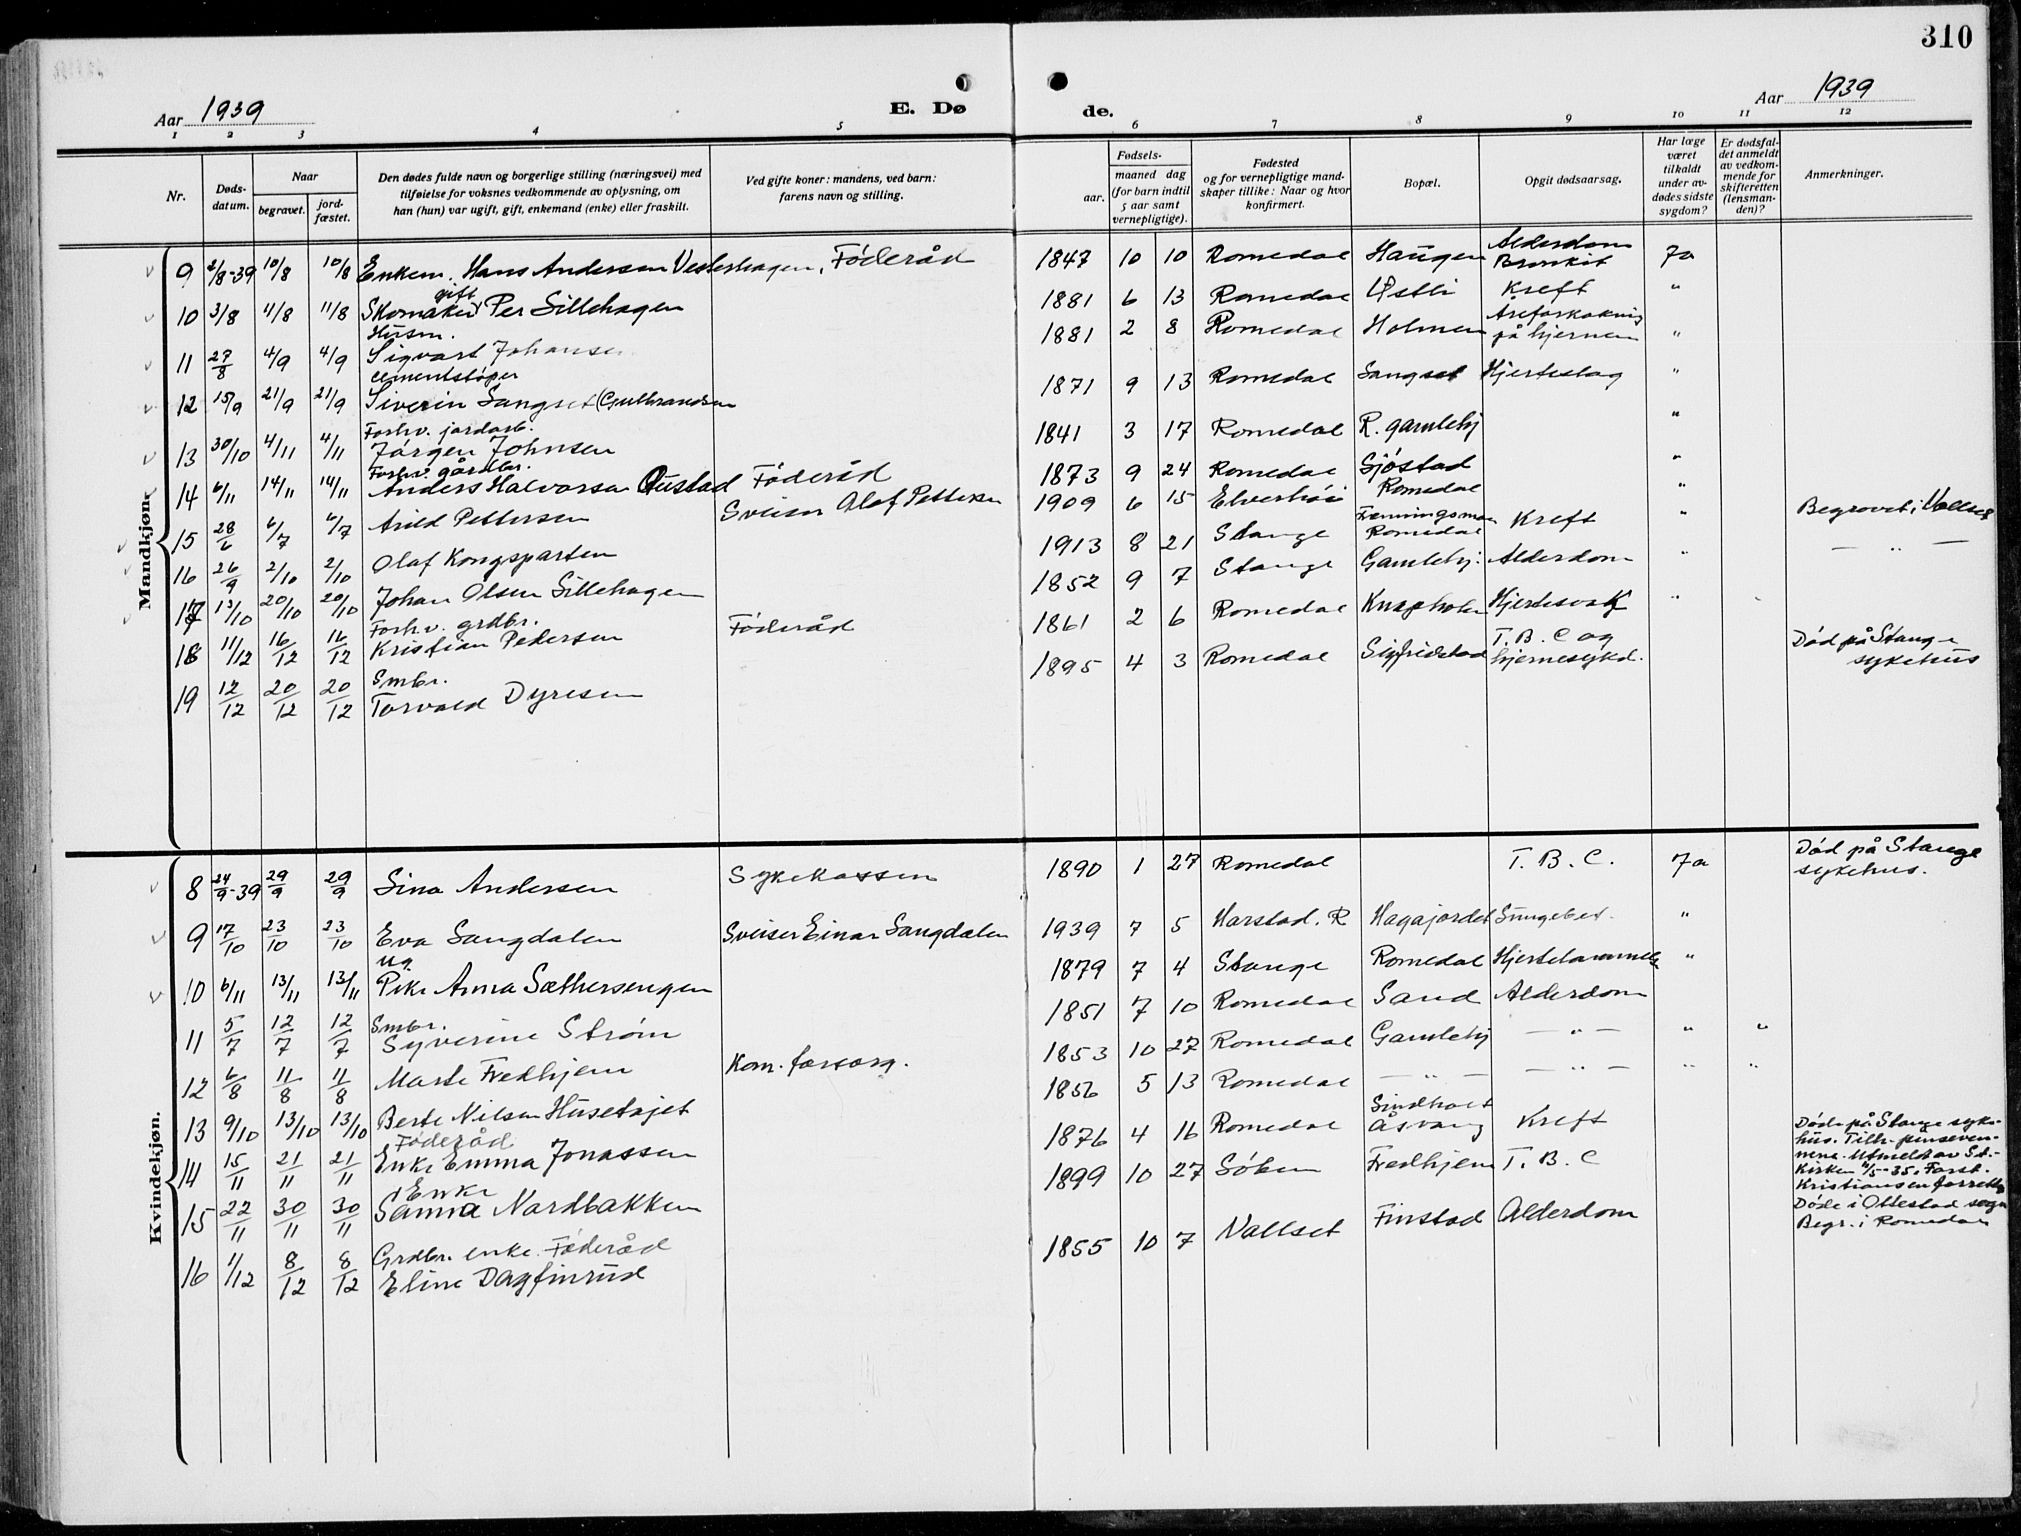 310
Aar 1939
E. Døde.
Aar 1939
1 2 3 4 5 6 7 8 9 10 11 12
Nr.
Døds-
datum.
Naar
begravet.
jord-
fæstet.
Den dødes fulde navn og borgerlige stilling (næringsvei) med
tilføielse for voksnes vedkommende av oplysning, om
han (hun) var ugift, gift, enkemand (enke) eller fraskilt.
Ved gifte koner: mandens, ved barn:
farens navn og stilling.
Fødsels-
aar.
maaned dag
(for barn indtil
5 aar samt
vernepligtige).
Fødested
og for vernepligtige mand-
skaper tillike: Naar og hvor
konfirmert.
Bopæl.
Opgit dødsaarsag.
Har læge
været
tilkaldt
under av-
dødes sidste
sygdom?
Er dødsfal-
det anmeldt
av vedkom-
mende for
skifteretten
(lensman-
den)?
Anmerkninger.
Mandkjøn.
9 2/8-39 10/8 10/8 Enkem. Hans Andersen Vesterhagen, Föderåd 1847 10 10 Romedal Haugen Alderdom Bronkit Ja
10 3/8 11/8 11/8 Skomaker gift Per Sillehagen 1881 6 13 Romedal Østli Kreft "
11 27/8 4/9 4/9 Husm. Sigvart Johansen 1881 2 8 Romedal Holmen Åreforkalkning på hjernen "
12 15/9 21/9 21/9 cementstøper Siverin Sangset (Gulbrandsen 1871 9 13 Romedal Sangset Hjerteslag "
13 30/10 4/11 4/11 Forhv. jordarb. Jörgen Johnsen 1841 3 17 Romedal R. gamlehj "
14 6/11 14/11 14/11 Forhv. gårdbr. Anders Halvorsen Oustad Föderåd 1873 9 24 Romedal Sjöstad "
15 28/6 6/7 6/7 Arild Pettersen Sveiser Olaf Pettersen 1909 6 15 Elverhöi Romedal " Begravet i Vallset
16 26/9 2/10 2/10 Olaf Kongsparten 1913 8 21 Stange Romedal Kreft " — " —
17 13/10 20/10 20/10 Johan Olsen Sillehagen 1852 9 7 Stange Gamlehj. Alderdom "
18 11/12 16/12 16/12 Forhv. grdbr. Kristian Pedersen Föderåd 1861 2 6 Romedal Knapholen Hjertesvak "
19 12/12 20/12 20/12 Smbr. Torvald Dyresen 1895 4 3 Romedal Sigfridstad T.B.C og hjernesykd. Död på Stange sykehus
Kvindekjøn.
8 24/9-39 29/9 29/9 Lina Andersen Sykekassen 1890 1 27 Romedal T.B.C. Ja Död på Stange sykehus.
9 17/10 23/10 23/10 Eva Sangdalen Sveiser Einar Sangdalen 1939 7 5 Harstad. R Hagajordet Lungebet. "
10 6/11 13/11 13/11 Ug. Pike Anna Sæthersengen 1879 7 4 Stange Romedal Hjertelammelse "
11 5/7 12/7 12/7 Smbr. Syverine Ström 1851 7 10 Romedal Sand Alderdom
12 6/8 11/8 11/8 Marte Fredhjem Kom. forsorg. 1853 10 27 Romedal Gamlehj — " — " "
13 9/10 13/10 13/10 Berte Nilsen Husetøjet 1856 5 13 Romedal — " — — " — " "
14 15/11 21/11 21/11 Föderåd Enke Emma Jonassen 1876 4 16 Romedal Lindholt Åsvang Kreft Död på Stange syke-
hus. Tilh. pinseven-
nene. Utmeldt av St.-
Kirken 4/5-35. Forst.
Kristiansen forrettet
15 22/11 30/11 30/11 Enke Sanna Nordbakken 1899 10 27 Søben Fredhjem T.B.C Döde i Ottestad sogn
Begr. i Romedal
16 1/12 8/12 8/12 Grdbr. enke. Föderåd Eline Dagfinrud 1855 10 7 Vallset Finstad Alderdom